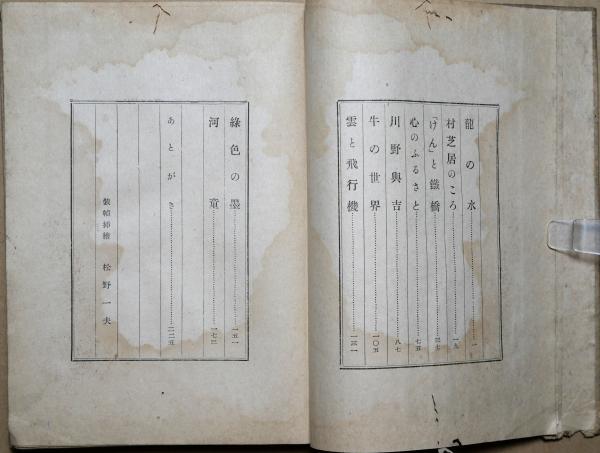 龍の水……一
村芝居のころ……一九
「けん」と鐵橋……三七
心のふるさと……七五
川野與吉……八七
牛の世界……一〇五
雲と飛行機……一三一
綠色の墨……一五一
河童……一七三
あとがき……二二五
裝幀揷繪 松野一夫